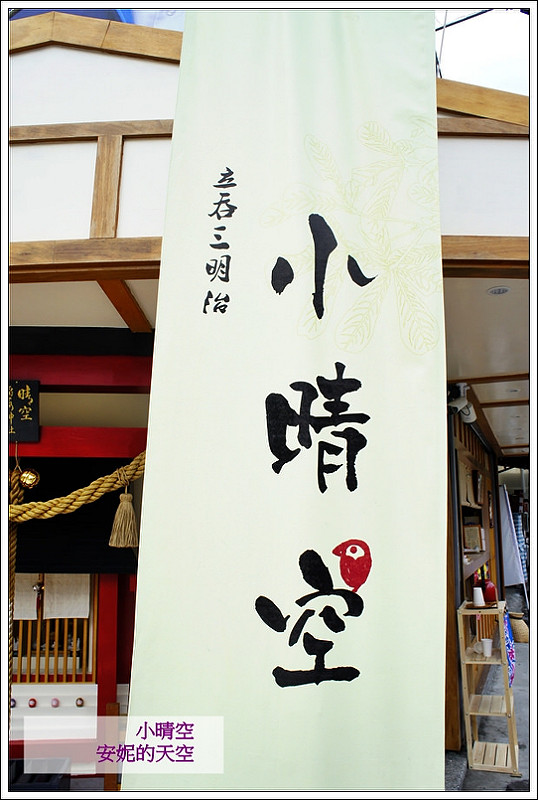 小晴空
立吞三明治
晴空
小晴空
安妮的天空